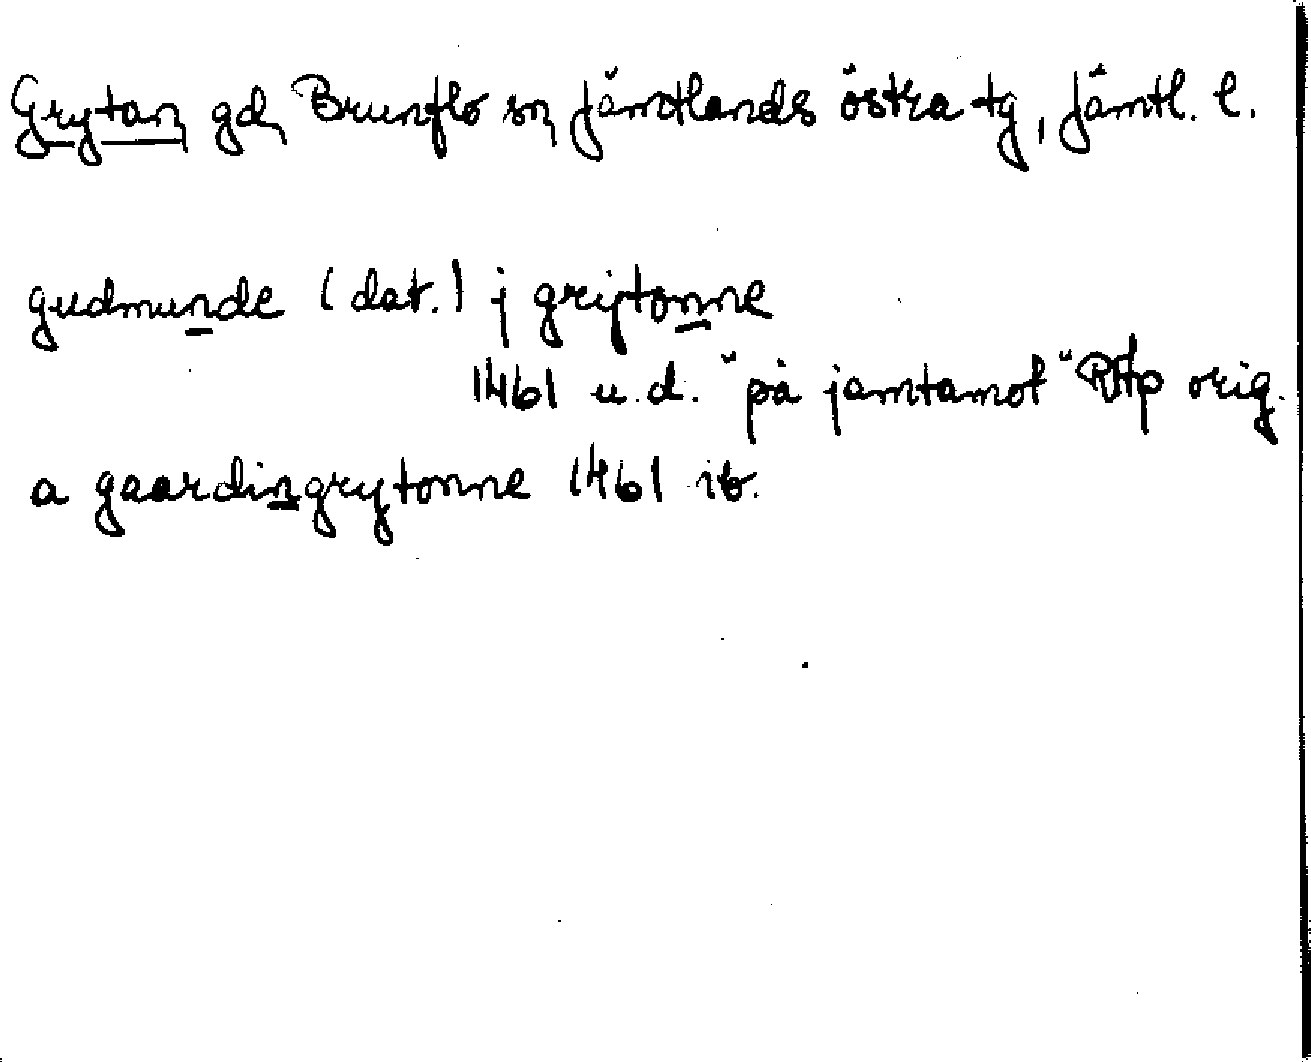 Grytan gd, Brunflo sn, Jämtlands östra tg, Jämtl. l.
gudmunde (dat.) j grijtonne
1461 u.d. "på jamtamot" RAp orig.
a gaardin grytonne 1461 ib.